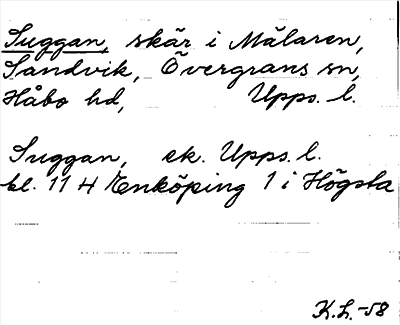 Suggan, skär i Mälaren,
Sandvik, Övergrans sn,
Håbo hd, Upps. l.
Suggan, ek. Upps. l.
bl. 11 H Enköping 1 i Högsta
K.L.-58